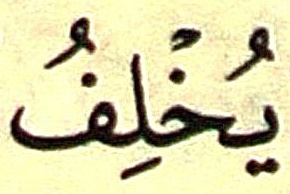 يُخْلِفُ